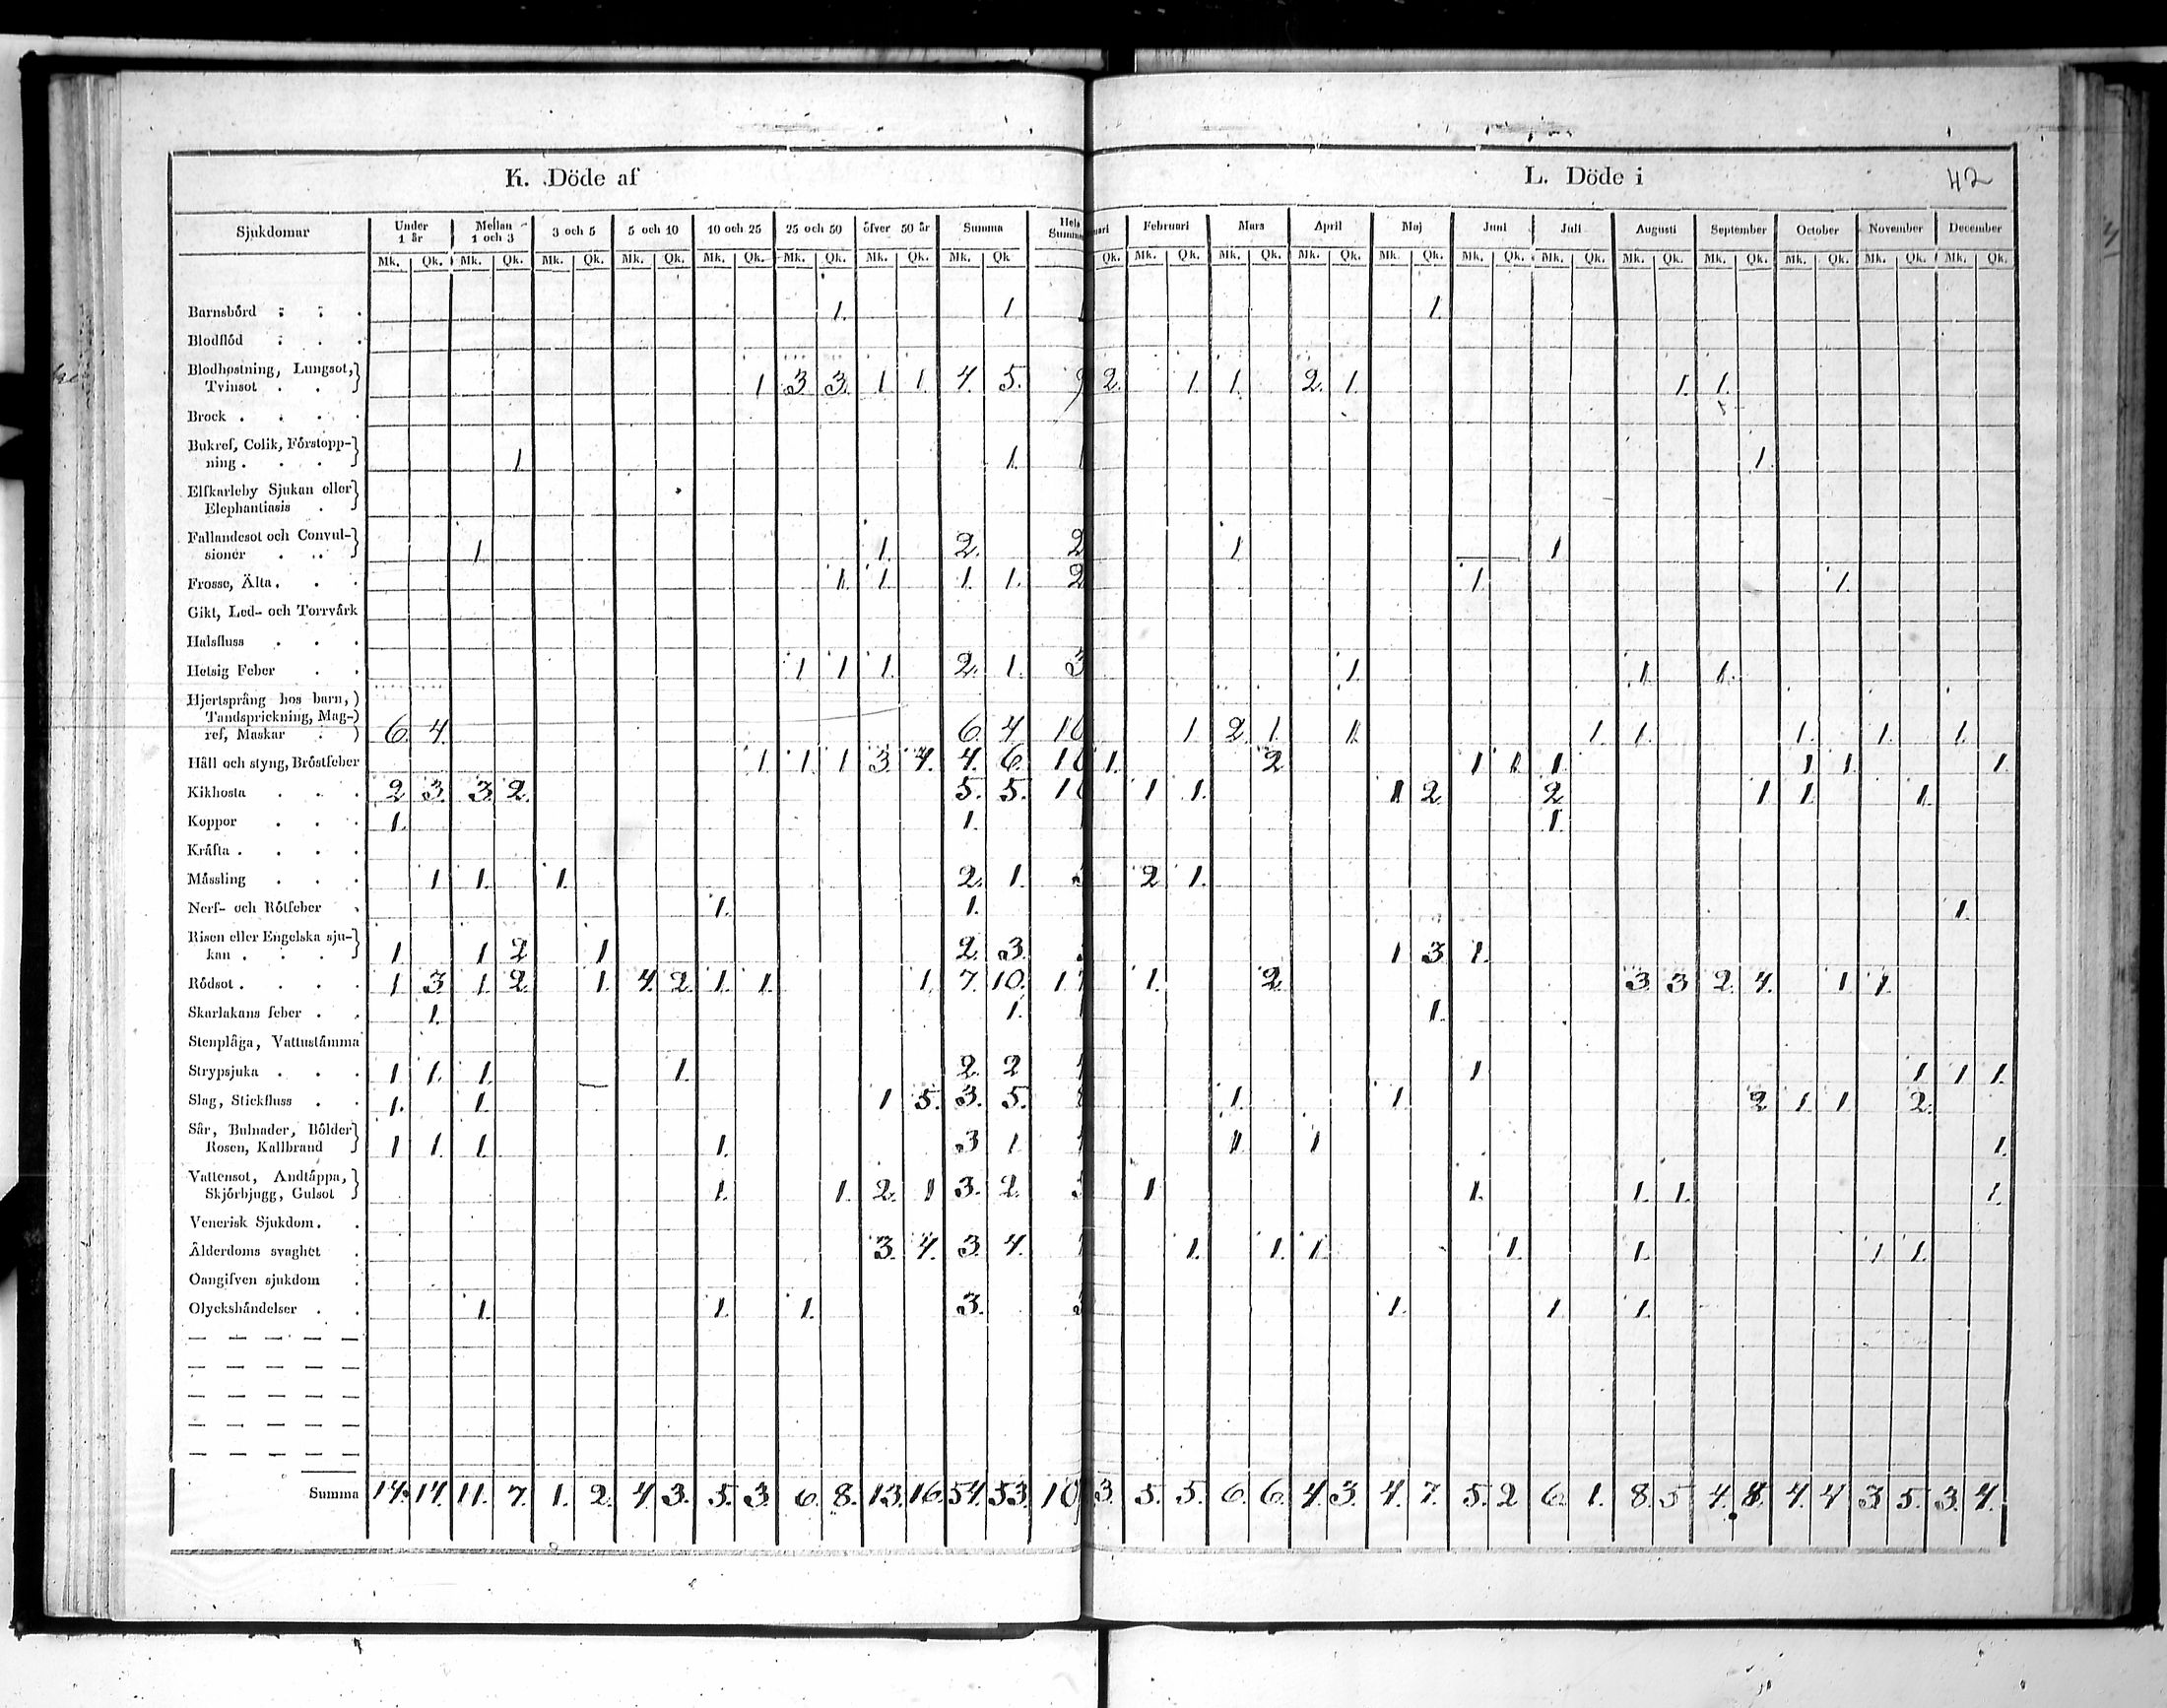 K. Döde af L. Döde i 42
Sjukdomar Under 1 år Mellan 1 och 3 3 och 5 5 och 10 10 och 25 25 och 50 öfver 50 år Summa Hela Februari Mars April Maj Juni Juli Augusti September October November December
Mk. Qk. Mk. Qk. Mk. Qk. Mk. Qk. Mk. Qk. Mk. Qk. Mk. Qk. Mk. Qk Qk. Mk. Qk. Mk. Qk. Mk. Qk. Mk. Qk. Mk. Qk. Mk. Qk. Mk. Qk. Mk. Qk. Mk. Qk. Mk. Qk. Mk. Qk.
Barnsbörd 1. 1 1.
Blodflöd
Blodhostning, Lungsot,
Tvinsot 1 3 3. 1 1. 4. 5. 9 2. 1 1. 2. 1. 1. 1.
Brock
Bukref, Colik, Förstopp-
ning 1 1. 1
Elfkarleby Sjukan eller
Elephantiasis
Fallandesot och Convul-
sioner 1 1. 2. 2 1 1
Frossa, Älta 1. 1. 1. 1. 2 1. 1.
Gikt, Led- och Torrvärk
Halsfluss
Hetsig Feber 1 1 1. 2. 1. 3 1. 1 1.
Hjertsprång hos barn,
Tandsprickning, Mag-
ref, Maskar 6. 4. 6. 4 10 1 2. 1. 1. 1. 1. 1. 1. 1.
Håll och styng, Bröstfeber 1. 1. 1 3. 4. 4. 6. 10 1. 2. 1 1. 1. 1. 1. 1.
Kikhosta 2 3. 3. 2. 5. 5. 10 1 1. 1 2. 2 1 1. 1.
Koppor 1. 1. 1.
Kräfta
Mässling 1 1. 1. 2. 1. 2. 1.
Nerf- och Rötfeber 1. 1. 1.
Risen eller Engelska sju-
kan 1. 1 2 1 2. 3. 1 3. 1.
Rödsot 1 3. 1. 2. 1. 4. 2. 1. 1. 1. 7. 10. 17 1. 2. 3. 3 2. 4. 1 1.
Skarlakans feber 1. 1. 1.
Stenplåga, Vattustämma
Strypsjuka 1. 1. 1. 1. 2. 2 1 1 1 1.
Slag, Stickfluss 1. 1. 1 5. 3. 5. 1. 1. 2 1. 1. 2.
Sår, Bulnader, Bölder
Rosen, Kallbrand 1 1. 1. 1. 3 1 1 1 1.
Vattensot, Andtäppa,
Skjörbjugg, Gulsot 1. 1. 2. 1 3. 2. 1 1. 1. 1. 1.
Venerisk Sjukdom
Ålderdoms svaghet 3. 4. 3. 4. 1. 1. 1. 1. 1. 1 1.
Oangifven sjukdom
Olyckshändelser 1. 1. 1. 3. 3 1. 1 1.
Summa 14. 14. 11. 7. 1. 2. 4. 3. 5. 3. 6. 8. 13. 16. 54. 53. 10 3. 5. 5. 6. 6. 4. 3. 4. 7. 5. 2 6. 1. 8. 5 4. 8. 4. 4 3 5. 3. 4.